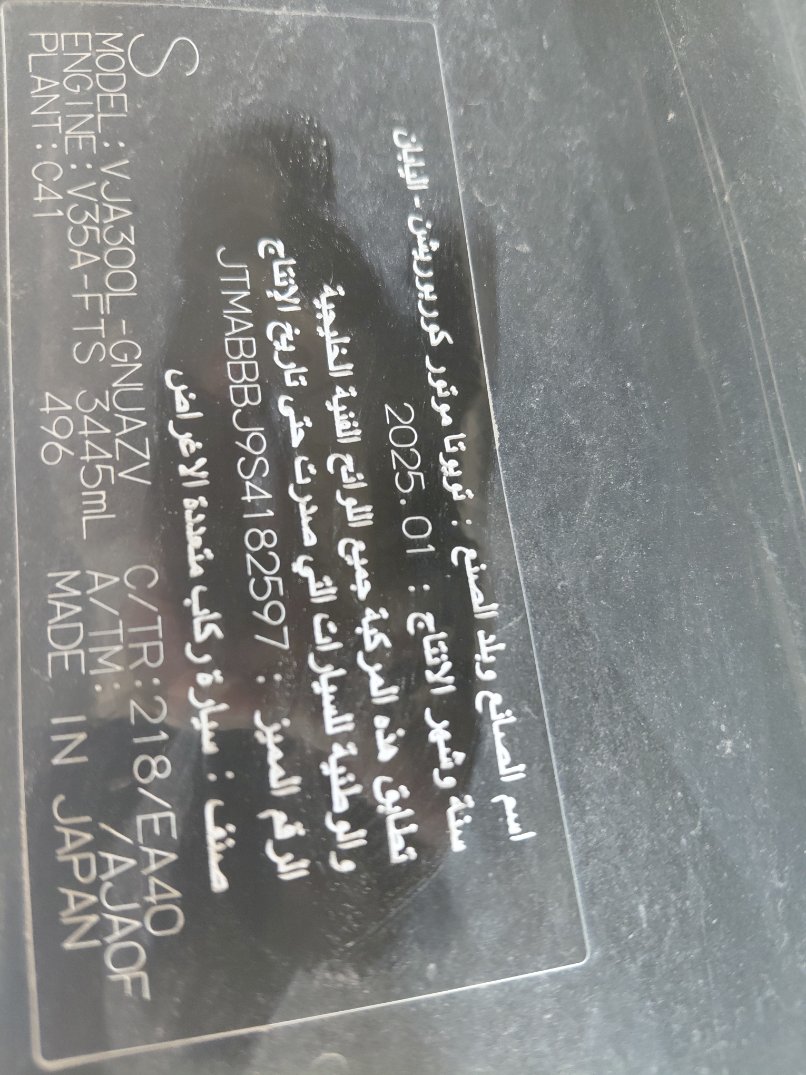 اسم الصانع وبلد الصنع : تويوتا موتور كوربوريشن - اليابان
سنة وشهر الانتاج : 2025.01
تطابق هذه المركبة جميع اللوائح الفنية الخليجية
والوطنية للسيارات التي صدرت حتى تاريخ الإنتاج
الرقم المميز : JTMABBBJ9S4182597
صنف : سيارة ركاب متعددة الاغراض
S
MODEL:VJA300L-GNUAZV C/TR:218/EA40
ENGINE:V35A-FTS 3445mL A/TM: /AJA0F
PLANT:C41 496 MADE IN JAPAN